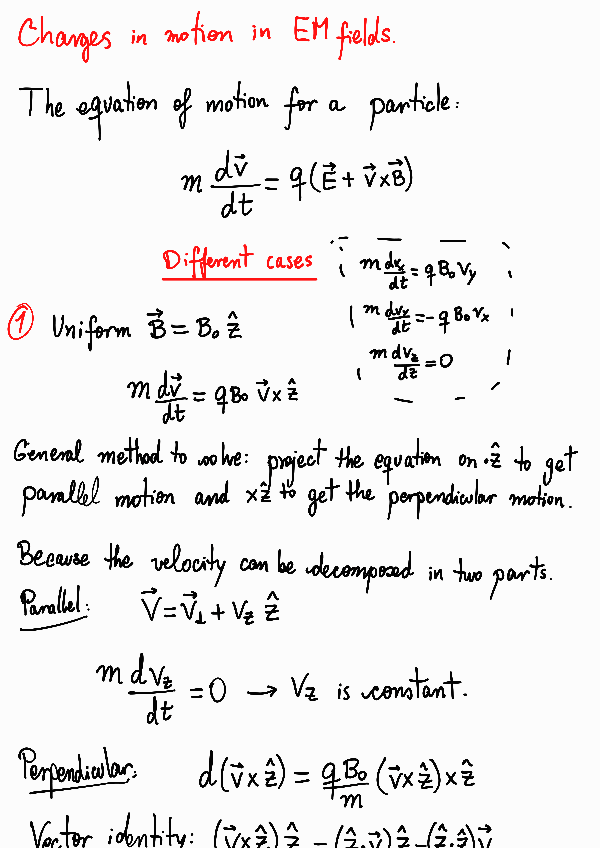 Changes in motion in EM fields.
The equation of motion for a particle:
m dv⃗/dt = q(E⃗ + v⃗xB⃗)
Different cases
m dvx/dt = qB₀Vy
m dvx/dt = -qB₀vx
m dvz/dz = 0
① Uniform B⃗ = B₀ ẑ
m dv⃗/dt = qB₀ v⃗xẑ
General method to solve: project the equation on ·ẑ to get
parallel motion and xẑ to get the perpendicular motion.
Because the velocity can be decomposed in two parts.
Parallel: V⃗ = V⃗⊥ + Vz ẑ
m dVz/dt = 0 → Vz is constant.
Perpendicular: d(v⃗xẑ) = qB₀/m (v⃗xẑ)xẑ
Vector identity: (v⃗xẑ)ẑ = (ẑ·v⃗)ẑ-(ẑ·ẑ)v⃗